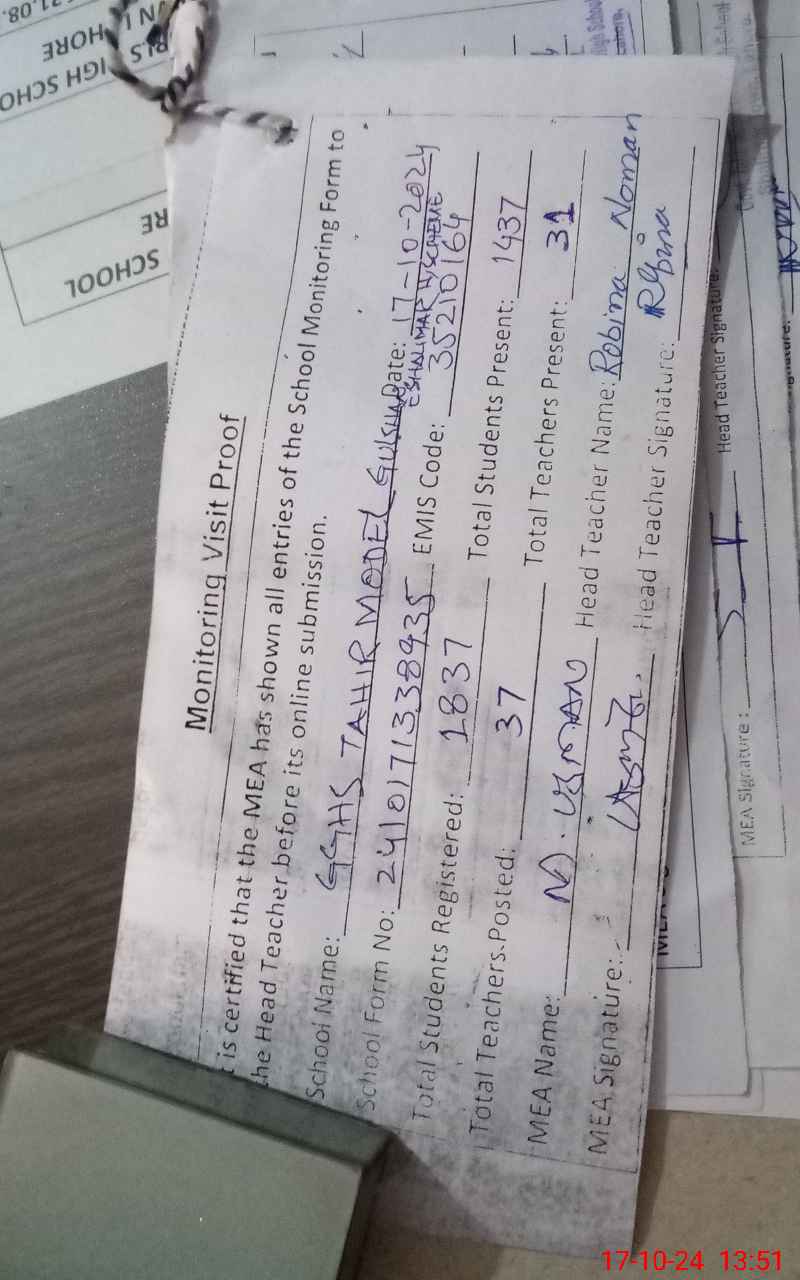 Monitoring Visit Proof
is certified that the MEA has shown all entries of the School Monitoring Form to
the Head Teacher before its online submission.
School Name: GGHS TAHIR MODEL GULSHAN Date: 17-10-2024
E SHALIMAR H/SCHEME
School Form No: 2410171338935 EMIS Code: 35210164
Total Students Registered: 1837 Total Students Present: 1437
Total Teachers Posted: 37 Total Teachers Present: 31
MEA Name: M. USMAN Head Teacher Name: Robina Noman
MEA Signature: Usman Head Teacher Signature: Robina
MEA Signature: Head Teacher Signature:
SCHOOL
HORE
IGH SCHO
17-10-24 13:51